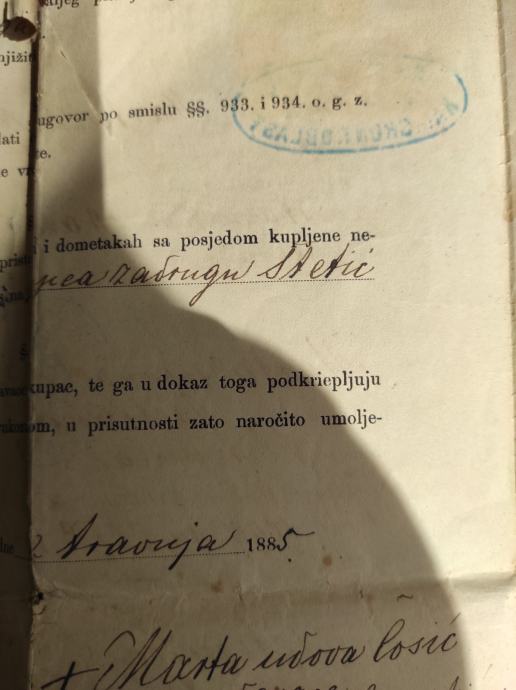 ugovor po smislu §§. 933. i 934. o. g. z.
lati
te.
i dometakah sa posjedom kupljene ne-
pca zadrugu Stetić
kupac, te ga u dokaz toga podkriepljuju
om, u prisutnosti zato naročito umolje-
2 travnja 1885
+ Marta udova Čosić